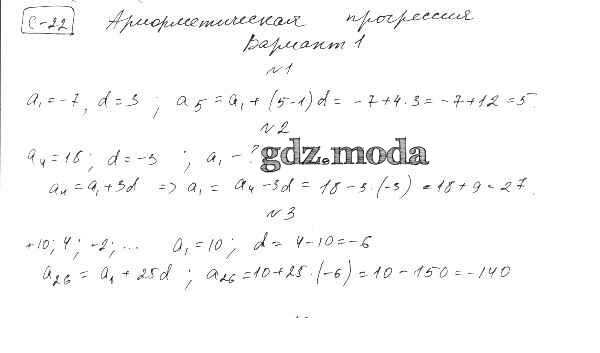 С-22 Арифметическая прогрессия
Вариант 1
№1
a₁ = -7, d = 3 ; a₅ = a₁ + (5-1)d = -7+4·3 = -7+12 = 5.
№2
a₄ = 18 ; d = -3 ; a₁ - ? gdz.moda
a₄ = a₁ + 3d => a₁ = a₄ - 3d = 18 - 3·(-3) = 18 + 9 = 27.
№3
+10; 4; -2; ... a₁ = 10; d = 4-10 = -6
a₂₆ = a₁ + 25d ; a₂₆ = 10+25·(-6) = 10 - 150 = -140